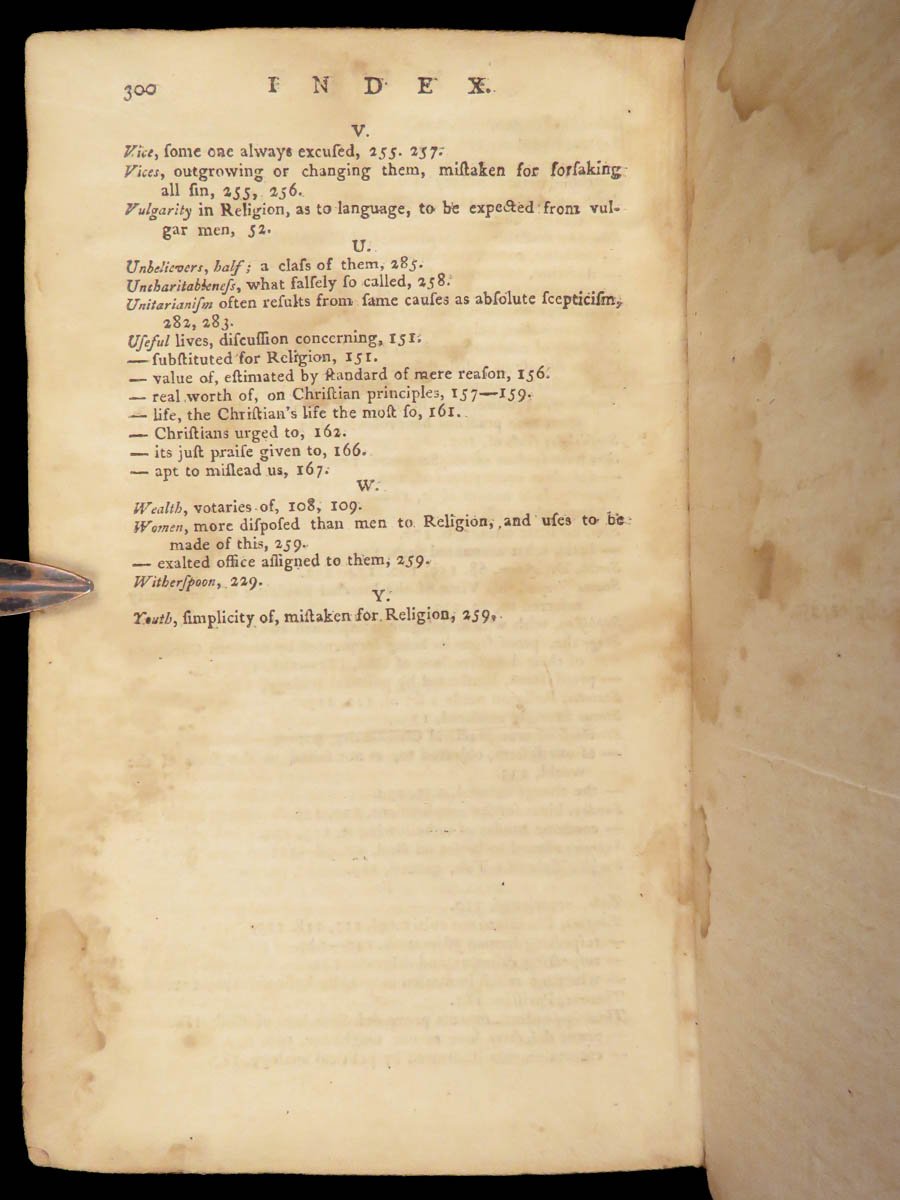 300 INDEX.
V.
Vice, ſome one always excuſed, 255. 257.
Vices, outgrowing or changing them, miſtaken for forſaking
all ſin, 255, 256.
Vulgarity in Religion, as to language, to be expected from vul-
gar men, 52.
U.
Unbelievers, half; a claſs of them, 285.
Uncharitableneſs, what falſely ſo called, 258.
Unitarianiſm often reſults from ſame cauſes as abſolute ſcepticiſm,
282, 283.
Uſeful lives, diſcuſſion concerning, 151.
— ſubſtituted for Religion, 151.
— value of, eſtimated by ſtandard of mere reaſon, 156.
— real worth of, on Chriſtian principles, 157—159.
— life, the Chriſtian's life the moſt ſo, 161.
— Chriſtians urged to, 162.
— its juſt praiſe given to, 166.
— apt to miſlead us, 167.
W.
Wealth, votaries of, 108, 109.
Women, more diſpoſed than men to Religion, and uſes to be
made of this, 259.
— exalted office aſſigned to them, 259.
Witherſpoon, 229.
Y.
Youth, ſimplicity of, miſtaken for Religion, 259.